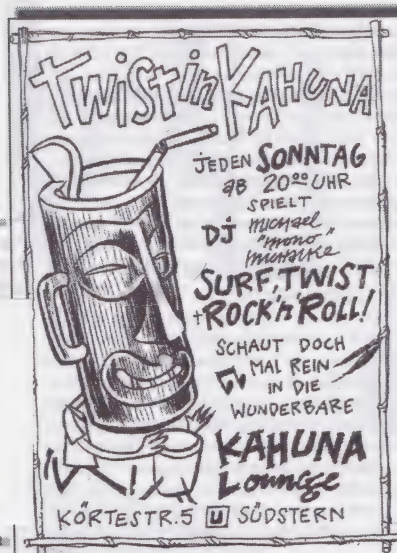 Twist in KAHUNA
JEDEN SONNTAG
AB 20⁰⁰ UHR
SPIELT
DJ Michael
"mono"
SURF, TWIST
+ ROCK'n'ROLL!
SCHAUT DOCH
MAL REIN
IN DIE
WUNDERBARE
KAHUNA
Lounge
KÖRTESTR. 5 U SÜDSTERN